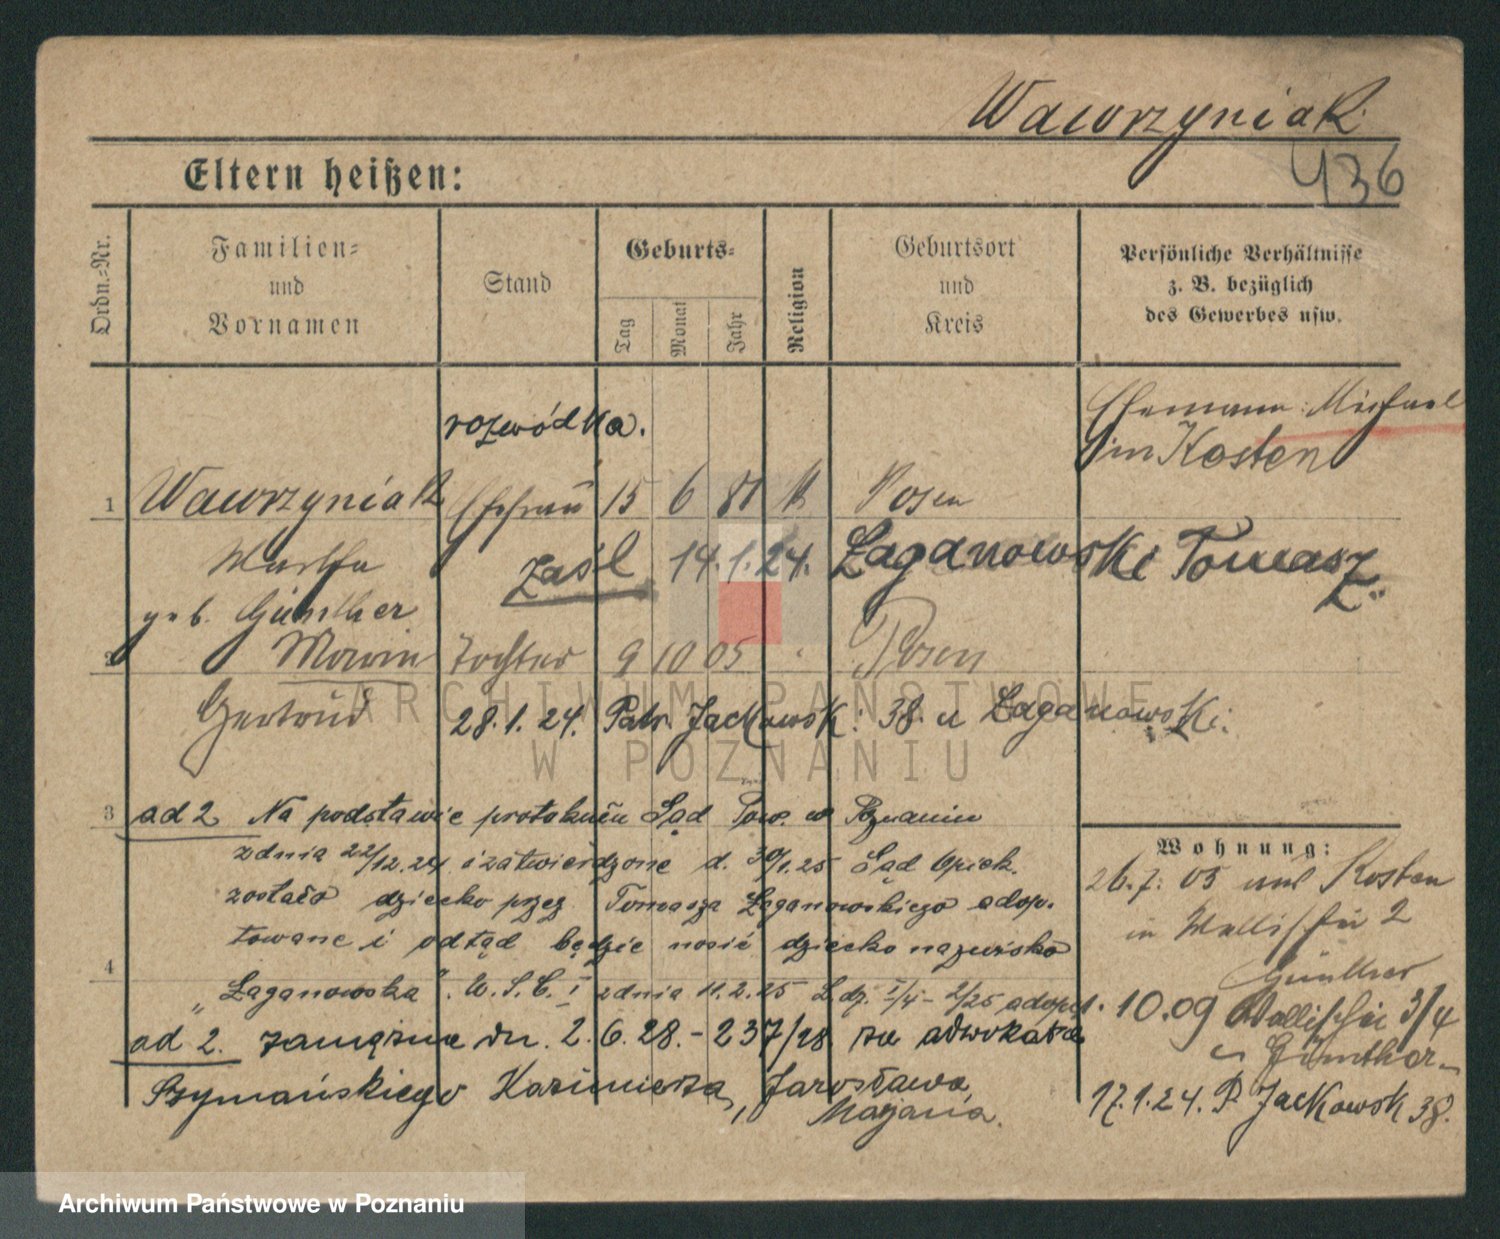 Wawrzyniak
436
Eltern heißen:
Ordn.-Nr.
Familien-
und
Vornamen
Stand
Geburts-
Tag
Monat
Jahr
Religion
Geburtsort
und
Kreis
Persönliche Verhältnisse
z. B. bezüglich
des Gewerbes usw.
rozwódka.
Ehemann: Michael
in Kosten
1 Wawrzyniak Ehefrau 15 6 81 k Posen
Martha zaśl 14.1.24. Łaganowski Tomasz
geb. Günther
2 Tochter 9 10 05 Posen
Gertrud 28.1.24. Patr. Jackowski 38. u Łaganowski
3 ad 2 Na podstawie protokułu Sąd Pow. w Poznaniu
z dnia 22/12.24 i zatwierdzone d. 30/1.25 Sąd Opiek.
zostało dziecko przez Tomasza Łaganowskiego adop-
towane i odtąd będzie nosić dziecko nazwisko
4 „Łaganowska". U.S.C. I z dnia 11.2.25
ad 2. zamężna dn. 2.6.28. - 237/28 za adwokata
Szymańskiego Kazimierza, Jarosława,
Marjana.
Wohnung:
26.7. 05 aus Kosten
in Wallischei 2
Günther
1.10.09 Wallischei 3/4
Günther
17.1.24. P. Jackowsk 38.
ARCHIWUM PAŃSTWOWE
W POZNANIU
Archiwum Państwowe w Poznaniu